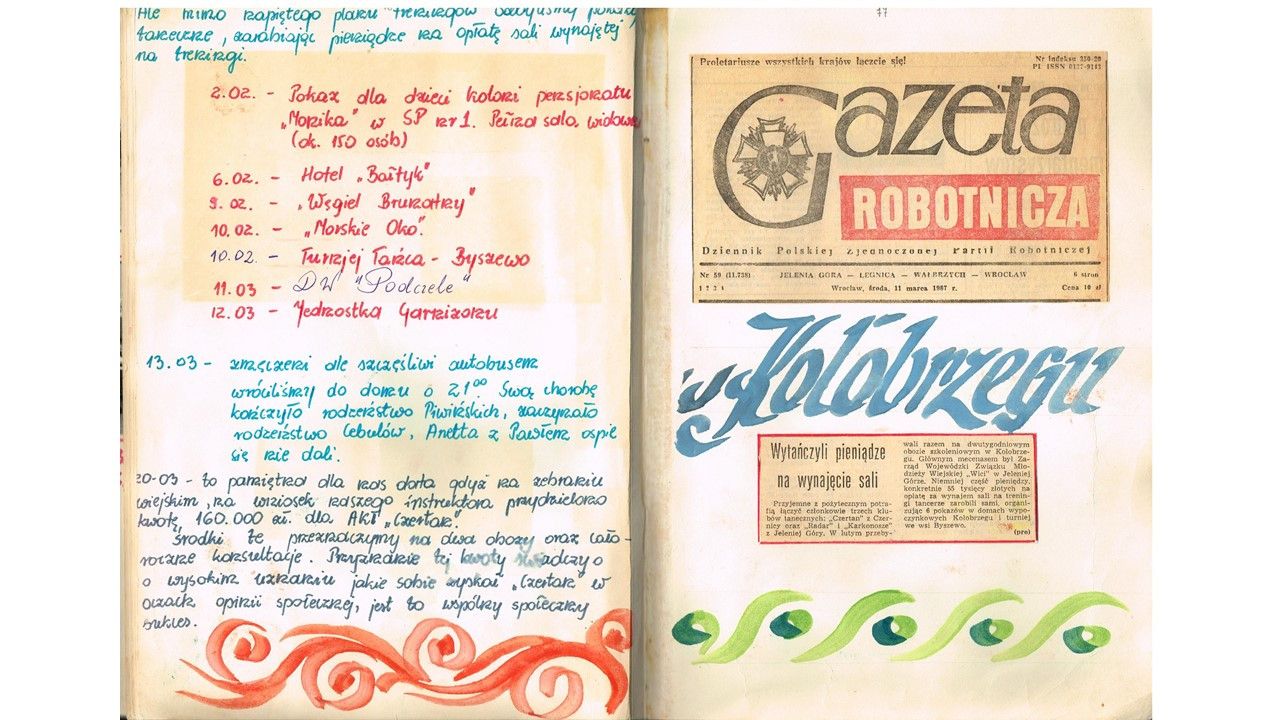 Ale mimo napiętego planu treningów odbyliśmy pokazy
taneczne, zarabiając pieniądze na opłatę sali wynajętej
na treningi.
2.02. - Pokaz dla dzieci kolonii pensjonatu
„Monika" w SP nr 1. Pełna sala widowni
(ok. 150 osób)
6.02. - Hotel „Bałtyk"
9.02. - „Węgiel Brunatny"
10.02. - „Morskie Oko".
10.02. - Turniej Tańca - Byszewo
11.03 - DW "Podczele"
12.03 - Jednostka Garnizonu
13.03 - zmęczeni ale szczęśliwi autobusem
wróciliśmy do domu o 21⁰⁰. Swą chorobę
kończyło rodzeństwo Piwińskich, zaczynało
rodzeństwo Cebulów, Anetta z Pawłem ospie
się nie dali.
20-03 - to pamiętna dla nas data gdyż na zebraniu
wiejskim, na wniosek naszego instruktora przydzielono
kwotę 160.000 zł. dla AKT „Czertak".
Środki te przeznaczymy na dwa obozy oraz cało-
roczne konsultacje. Przyznanie tej kwoty świadczy o
o wysokim uznaniu jakie sobie zyskał „Czertak" w
oczach opinii społecznej, jest to wspólny społeczny
sukces.
77
Proletariusze wszystkich krajów łączcie się!
Nr indeksu 350-20
PL ISSN 0137-9143
Gazeta
ROBOTNICZA
Dziennik Polskiej Zjednoczonej Partii Robotniczej
Nr 59 (11.738) JELENIA GÓRA — LEGNICA — WAŁBRZYCH — WROCŁAW 6 stron
1 2 3 4 Wrocław, środa, 11 marca 1987 r. Cena 10 zł
w Kołobrzegu
Wytańczyli pieniądze
na wynajęcie sali
Przyjemne z pożytecznym potra-
fią łączyć członkowie trzech klu-
bów tanecznych: „Czertan" z Czer-
nicy oraz „Radar" i „Karkonosze"
z Jeleniej Góry. W lutym przeby-
wali razem na dwutygodniowym
obozie szkoleniowym w Kołobrze-
gu. Głównym mecenasem był Za-
rząd Wojewódzki Związku Mło-
dzieży Wiejskiej „Wici" w Jeleniej
Górze. Niemniej część pieniędzy,
konkretnie 55 tysięcy złotych na
opłatę za wynajem sali na trenin-
gi tancerze zarobili sami organi-
zując 6 pokazów w domach wypo-
czynkowych Kołobrzegu i turniej
we wsi Byszewo.
(pro)